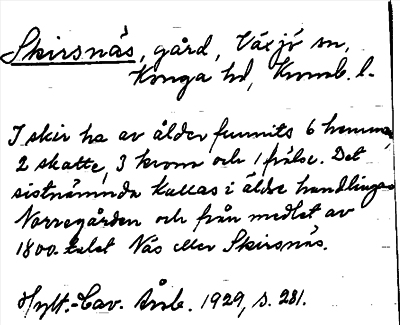 Skirsnäs, gård, Växjö sn,
Konga hd, Kronob. l.
I skir ha av ålder funnits 6 hemman,
2 skatte, 3 krono och 1 frälse. Det
sistnämnda kallas i äldre handlingar
Norregården och från medlet av
1800-talet Näs eller Skirsnäs.
Hylt.-Cav. Årsb. 1929, s. 281.